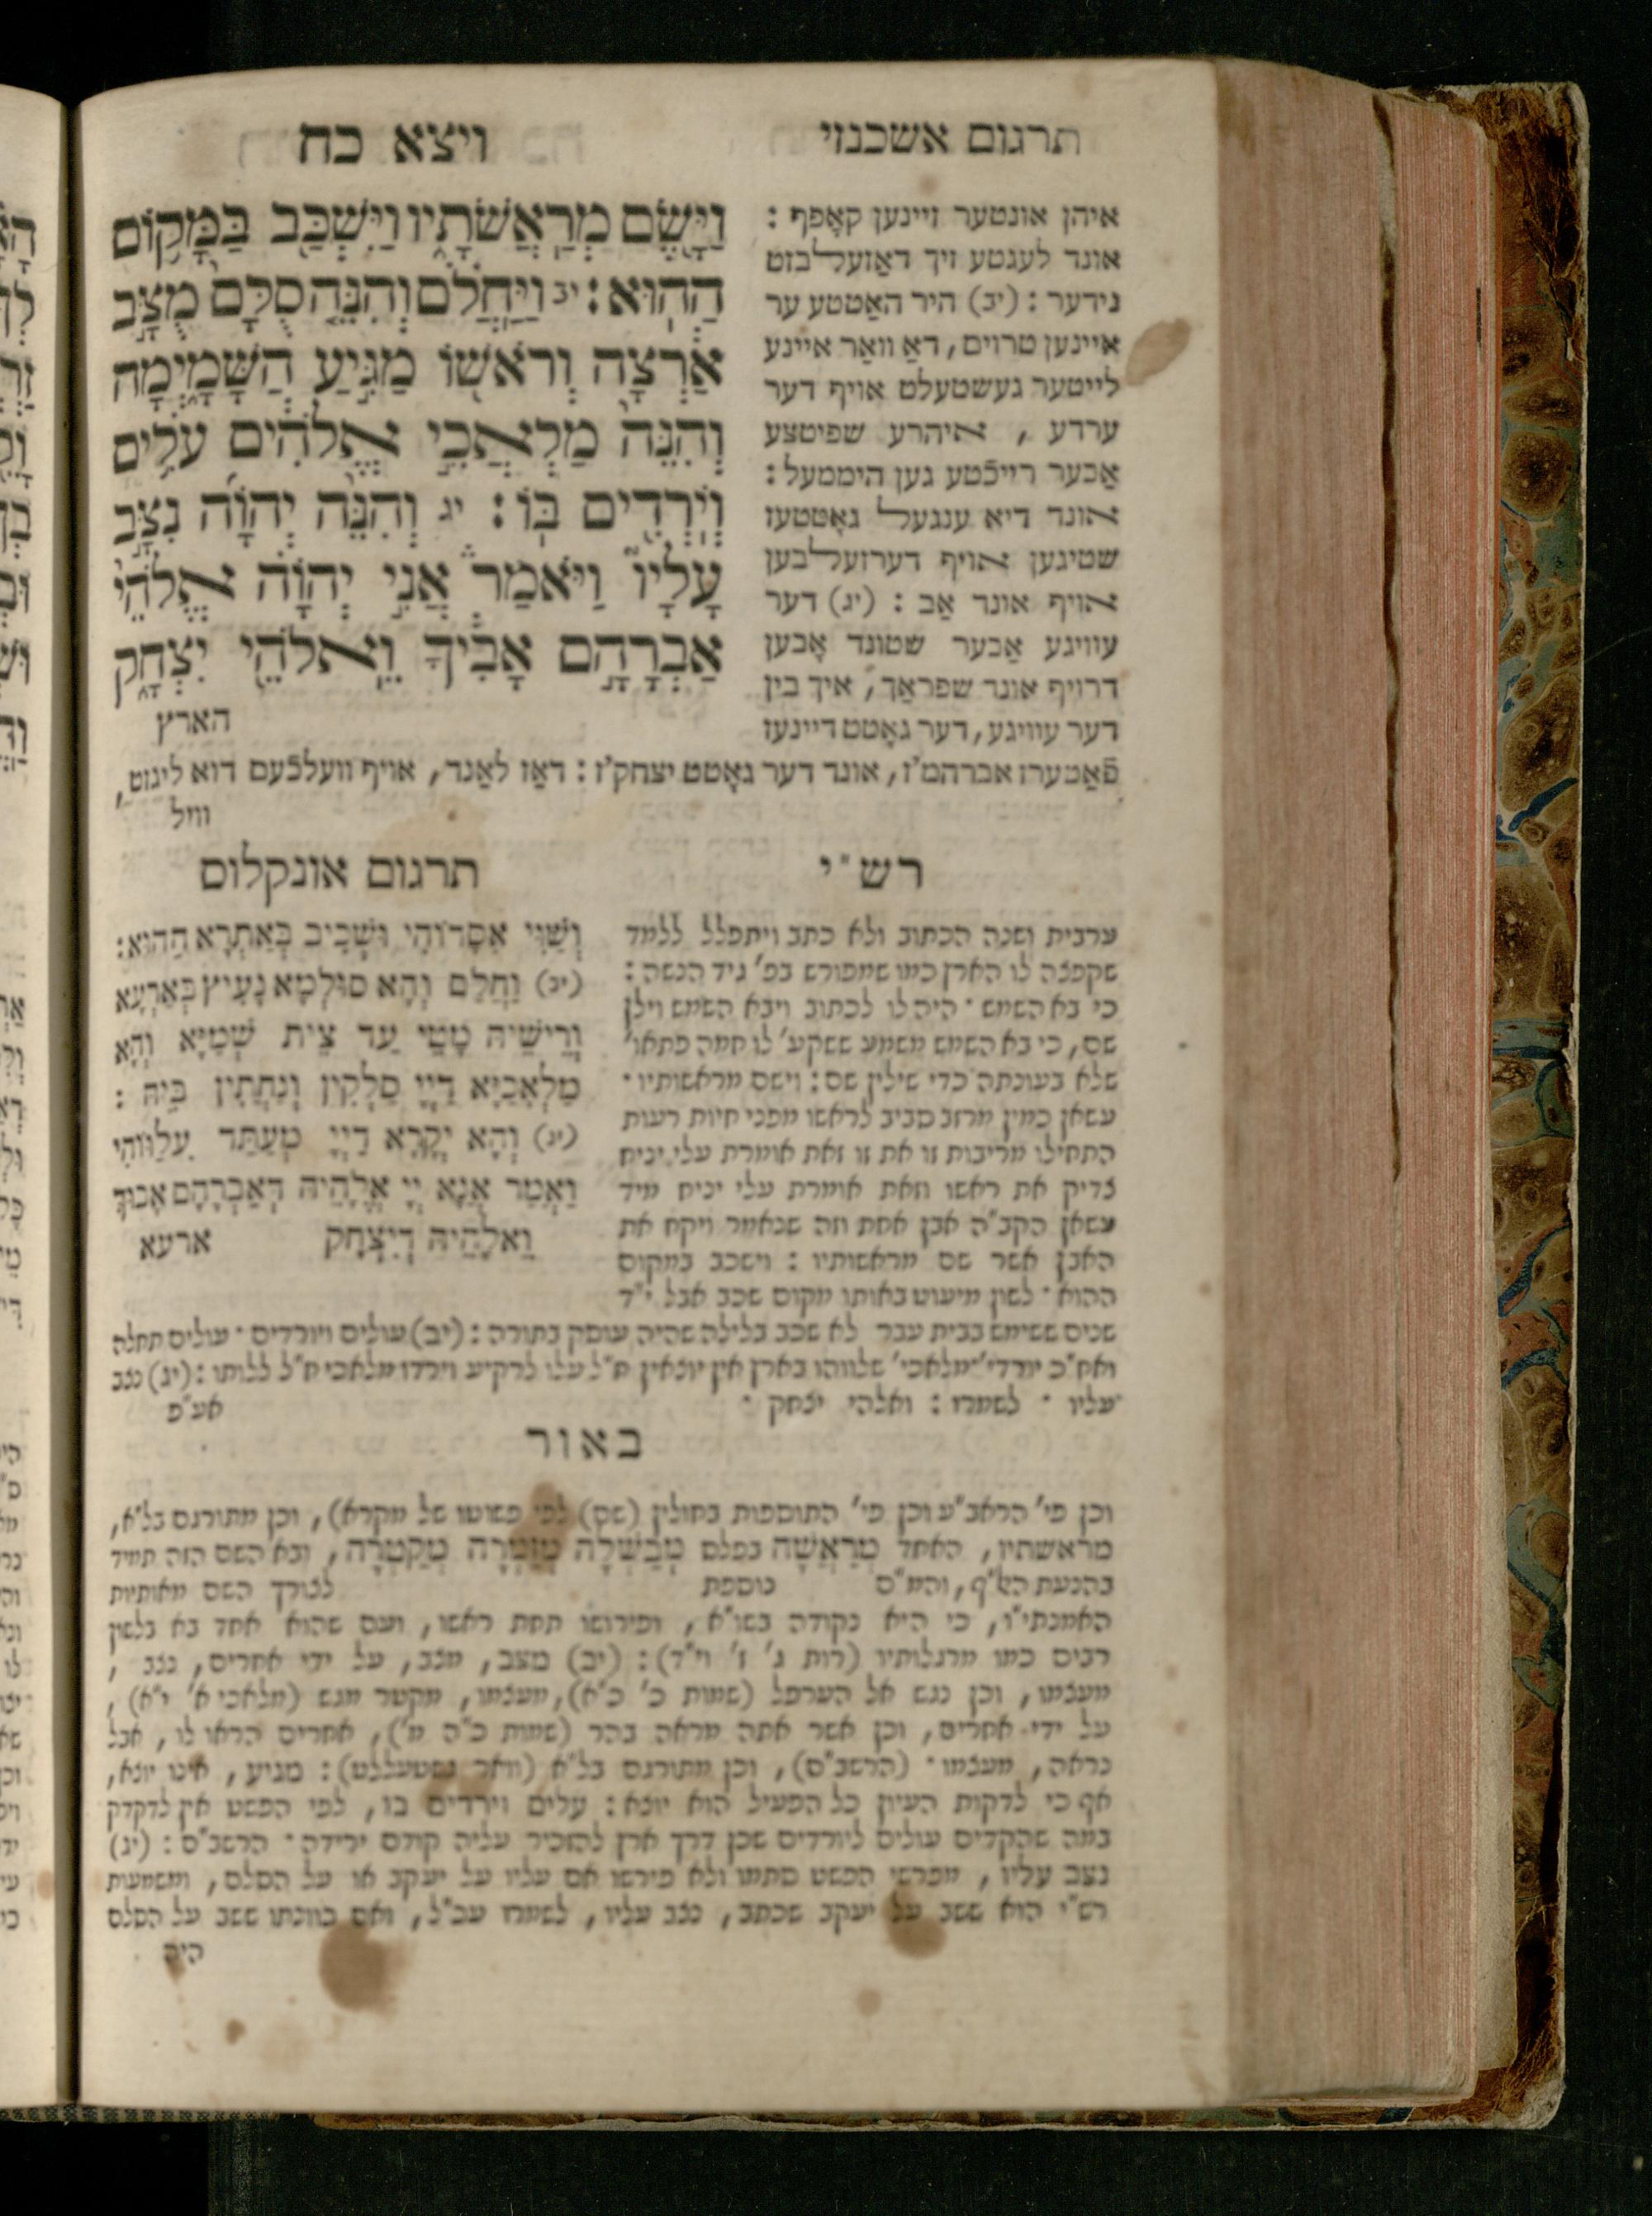 תרגום אשכנזי
ויצא כח
איהן אונטער זיינען קאָפף :
אונד לעגטע זיך דאַזעלבזט
נידער : (יב) היר האַטטע ער
איינען טרוים, דאַ וואַר איינע
לייטער געשטעלט אויף דער
ערדע , איהרע שפיטצע
אַבער רייכֿטע גען היממעל :
אונד דיא ענגעל גאָטטעז
שטיגען אויף דערזעלבען
אויף אונד אַב : (יג) דער
עוויגע אַבער שטונד אָבען
דרויף אונד שפראַך, איך בין
דער עוויגע, דער גאָטט דיינעז
וַיָּ֣שֶׂם מְרַֽאֲשֹׁתָ֑יו וַיִּשְׁכַּ֖ב בַּמָּק֥וֹם
הַהֽוּא : יב וַֽיַּחֲלֹ֗ם וְהִנֵּ֤ה סֻלָּם֙ מֻצָּ֣ב
אַ֔רְצָה וְרֹאשׁ֖וֹ מַגִּ֣יעַ הַשָּׁמָ֑יְמָה
וְהִנֵּה֙ מַלְאֲכֵ֣י אֱלֹהִ֔ים עֹלִ֥ים
וְיֹרְדִ֖ים בּֽוֹ : יג וְהִנֵּ֨ה יְהוָ֜ה נִצָּ֣ב
עָלָיו֮ וַיֹּאמַר֒ אֲנִ֣י יְהוָ֗ה אֱלֹהֵי֙
אַבְרָהָ֣ם אָבִ֔יךָ וֵֽאלֹהֵ֖י יִצְחָ֑ק
הארץ
פֿאַטערז אברהם"ז, אונד דער גאָטט יצחק"ז : דאַז לאַנד, אויף וועלכֿעם דוא ליגזט,
וויל
רש"י
ערבית ושנה הכתוב ולא כתב ויתפלל ללמד
שקפצה לו הארץ כמו שמפורש בפ' גיד הנשה :
כי בא השמש · היה לו לכתוב ויבא השמש וילן
שם, כי בא השמש משמע ששקע' לו חמה פתאו'
שלא בעונתה כדי שילין שם : וישם מראשותיו ·
עשאן כמין מרזב סביב לראשו מפני חיות רעות
התחילו מריבות זו את זו זאת אומרת עלי יניח
צדיק את ראשו וזאת אומרת עלי יניח מיד
עשאן הקב"ה אבן אחת וזה שנאמר ויקח את
האבן אשר שם מראשותיו : וישכב במקום
ההוא · לשון מיעוט באותו מקום שכב אבל י"ד
שנים ששימש בבית עבר לא שכב בלילה שהיה עוסק בתורה : (יב) עולים ויורדים · עולים תחלה
ואח"כ יורדי' מלאכי' שלווהו בארץ אין יוצאין ח"ל עלו לרקיע וירדו מלאכי ח"ל ללותו : (יג) נצב
עליו · לשמרו : ואלהי יצחק ·
אע"פ
תרגום אונקלוס
וְשַׁוִּי אִסָדוֹהִי וּשְׁכִיב בְּאַתְרָא הַהוּא :
(יב) וַחֲלַם וְהָא סוּלְמָא נָעִיץ בְּאַרְעָא
וְרֵישֵׁיהּ מָטֵי עַד צֵית שְׁמַיָּא וְהָא
מַלְאֲכַיָּא דַיְיָ סַלְקִין וְנַחֲתִין בֵּיהּ :
(יג) וְהָא יְקָרָא דַיְיָ מְעַתַּד עִלָּווֹהִי
וַאֲמַר אֲנָא יְיָ אֱלָהֵיהּ דְּאַבְרָהָם אֲבוּךְ
וֵאלָהֵיהּ דְיִצְחָק
ארעא
באור
וכן פי' הראב"ע וכן פי' התוספות בחולין (שם) לפי פשוטו של מקרא), וכן מתורגם בל"א,
מראשתיו, האחד מְרַאֲשָׁה בפלס מְבַשְּׁלָה מְזַמְּרָה מְקַטְּרָה, ובא השם הזה תמיד
בהנעת האל"ף, והמ"ם נוספת לצורך השם מאותיות
האמנתי"ו, כי היא נקודה בשו"א, ופירושו תחת ראשו, ועם שהוא אחד בא בלשון
רבים כמו מרגלותיו (רות ג' ז' וי"ד) : (יב) מצב, מצב, על ידי אחרים, נצב ,
מעצמו, וכן נגש אל הערפל (שמות כ' כ"א), מעצמו, מקטר מגש (מלאכי א' י"א) ,
על ידי אחרים, וכן אשר אתה מראה בהר (שמות כ"ה מ'), אחרים הראו לו, אבל
נראה, מעצמו · (הרשב"ם), וכן מתורגם בל"א (וואר געשטעללט) : מגיע, אינו יוצא,
אף כי לדקות העיון כל הפעיל הוא יוצא : עלים וירדים בו, לפי הפשט אין לדקדק
במה שהקדים עולים ליורדים שכן דרך ארץ להזכיר עליה קודם ירידה · הרשב"ם : (יג)
נצב עליו , מפרשי הפשט סתמו ולא פירשו אם עליו על יעקב או על הסלם , ומשמעות
רש"י הוא ששב על יעקב שכתב, נצב עליו, לשמרו עכ"ל, ואם כוונתו ששב על הסלם
היה